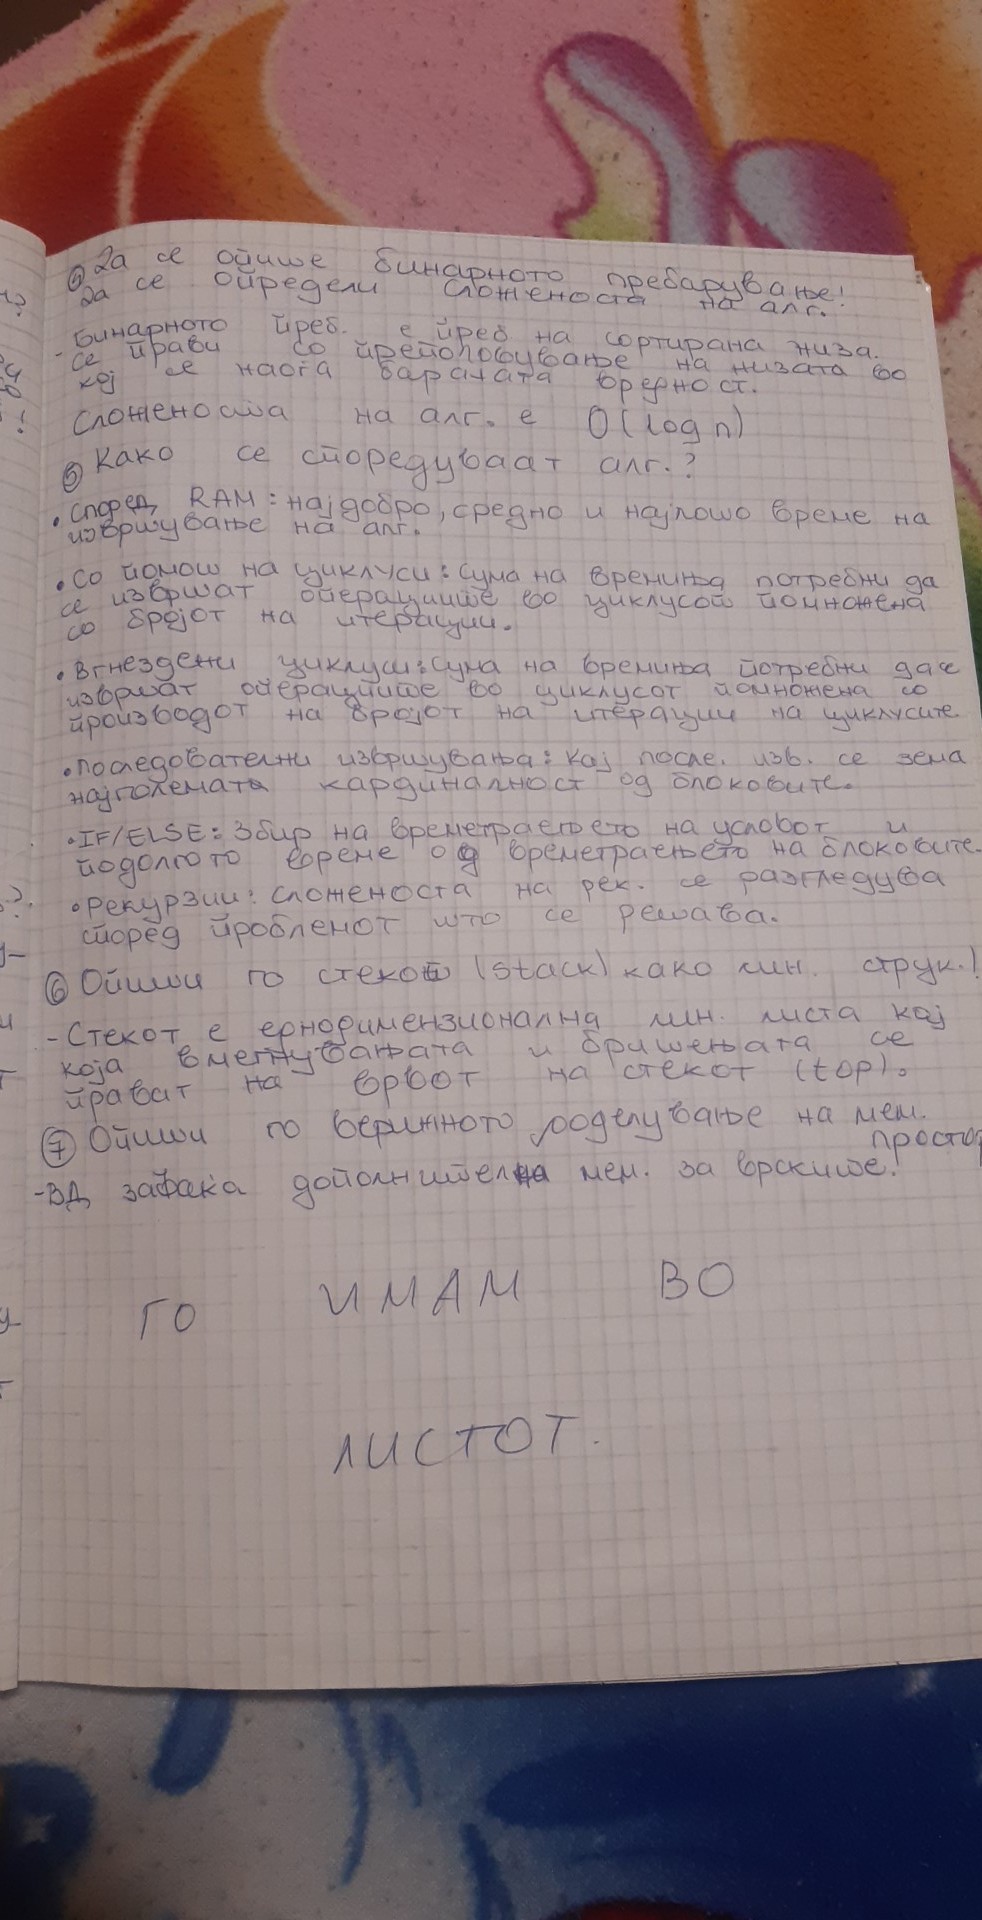 ④ Да се опише бинарното пребарување!
Да се определи сложеноста на алг.
- Бинарното преб. е преб на сортирана низа.
се прави со преполовување на низата во
кој се наоѓа бараната вредност.
Сложеноста на алг. е O(log n)
⑤ Како се споредуваат алг.?
• Според RAM: најдобро, средно и најлошо време на
извршување на алг.
• Со помош на циклуси: сума на времиња потребни да
се извршат операциите во циклусот помножена
со бројот на итерации.
• Вгнездени циклуси: сума на времиња потребни да се
извршат операциите во циклусот помножена со
производот на бројот на итерации на циклусите
• Последователни извршувања: кај после. изв. се зема
најголемата кардиналност од блоковите.
• IF/ELSE: Збир на времетраењето на условот и
подолгото време од времетраењето на блоковите.
• Рекурзии: сложеноста на рек. се разгледува
според проблемот што се решава.
⑥ Опиши го стекот (stack) како лин. струк.!
- Стекот е еднодимензионална лин. листа кај
која вметнувањата и бришењата се
прават на врвот на стекот (top).
⑦ Опиши го верижното доделување на мем.
простор
- ВД зафаќа дополнителна мем. за врските.
ГО ИМАМ ВО
ЛИСТОТ.